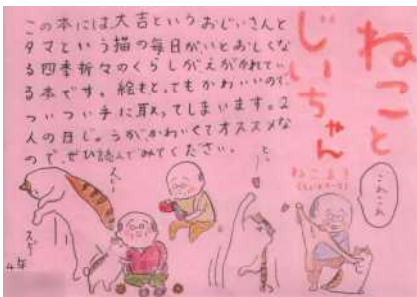 ねこと
じいちゃん
ねこまき
(ミューズワーク)
この本には大吉というおじいさんと
タマという猫の毎日がいとおしくな
る四季折々のくらしがえがかれてい
る本です。絵もとってもかわいいので、
ついつい手に取ってしまいます。2
人の日じょうがかわいくてオススメな
ので、ぜひ読んでみてください。
これこれ
4年